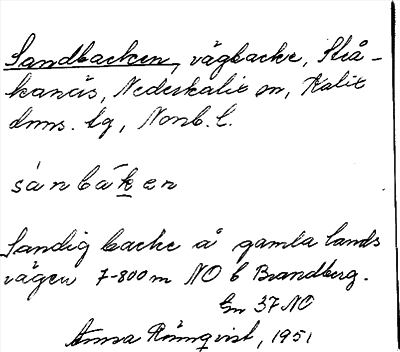 Sandbacken, vägbacke, Strå-
kanäs, Nederkalix sn, Kalix
dms. tg, Norrb. l.
sánbàḵen
Sandig backe å gamla lands
vägen 7-800 m NO b Brandberg.
Gm 37 NO
Anna Rönnqvist, 1951